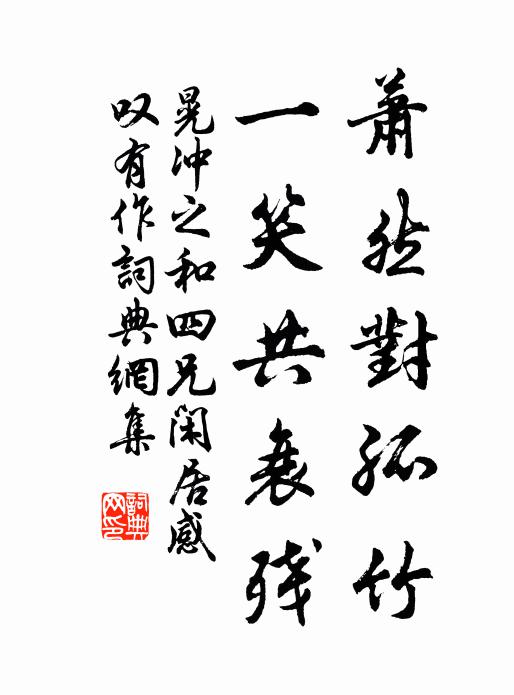 蕭然對孤竹
一笑共衰殘
晃沖之和四兄閑居感
叹有作詞典網集
詞典网印